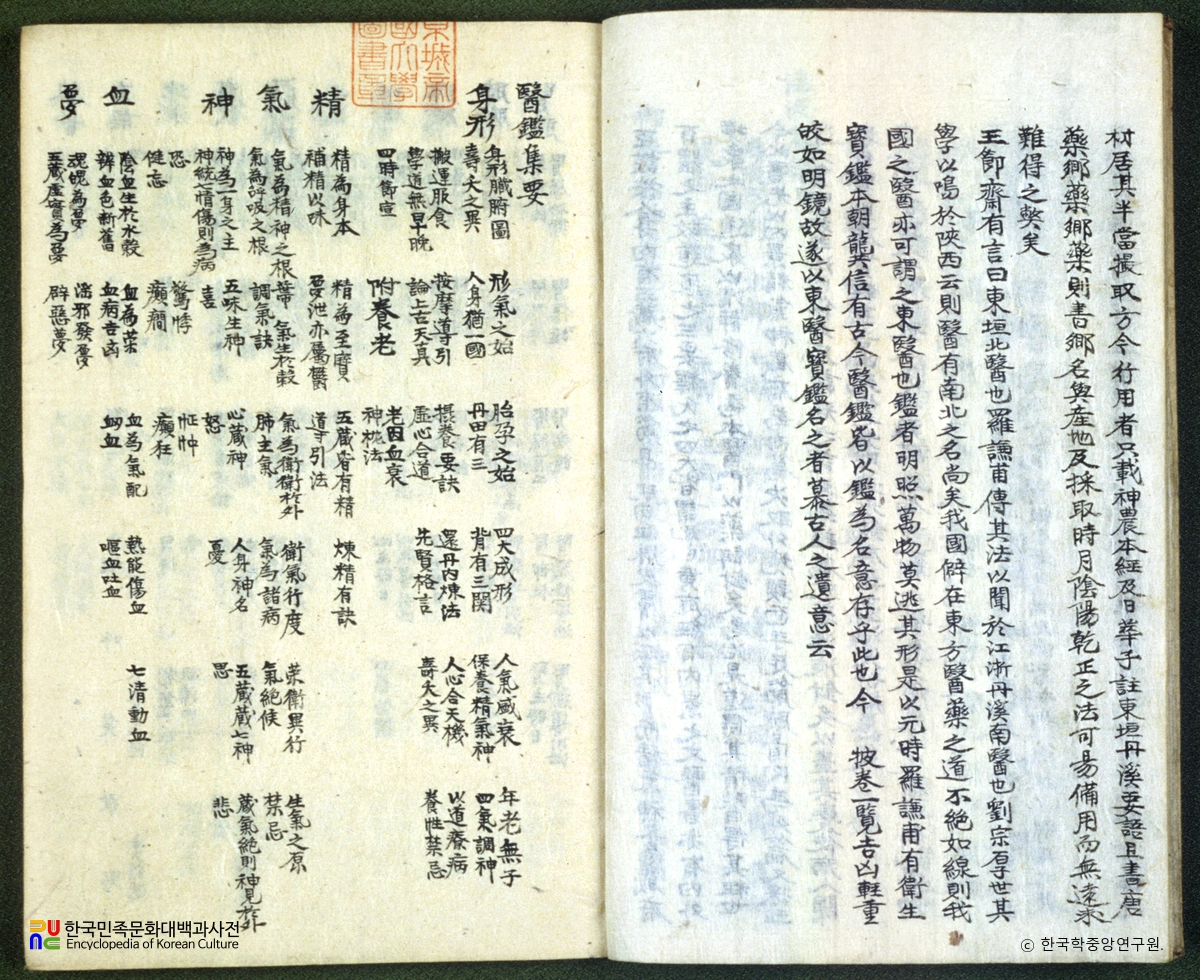 材居其半當撮取方今行用者只載神農本經及日華子註東垣丹溪要語且書唐
藥鄉藥鄉藥則書鄉名與産地及採取時月陰陽乾正之法可易備用而無遠求
難得之獘矣
王節齋有言曰東垣北醫也羅謙甫傳其法以聞於江浙丹溪南醫也劉宗厚世其
學以鳴於陝西云則醫有南北之名尚矣我國僻在東方醫藥之道不絶如線則我
國之醫亦可謂之東醫也鑑者明照萬物莫逃其形是以元時羅謙甫有衛生
寶鑑本朝龔信有古今醫鑑皆以鑑為名意存乎此也今 披卷一覽吉凶輕重
皎如明鏡故遂以東醫寶鑑名之者慕古人之遺意云
醫鑑集要
身形 身形臟腑圖 形氣之始 胎孕之始 四大成形 人氣盛衰 年老無子
壽夭之異 人身猶一國 丹田有三 背有三関 保養精氣神 四氣調神
搬運服食 按摩導引 攝養要訣 還丹内煉法 人心合天機 以道療病
學道無早晚 論上古天真 虛心合道 先賢格言 壽夭之異 養性禁忌
四時節宣 附養老 老因血衰
神枕法
精 精為身本 精為至寶 五藏皆有精 煉精有訣
補精以味 夢泄亦屬欝 導引法
氣 氣為精神之根蔕 氣生於穀 氣為衛衛於外 衛氣行度 荣衛異行 生氣之原
氣為呼吸之根 調氣訣 肺主氣 氣為諸病 氣絶候 禁忌
神 神為一身之主 五味生神 心藏神 人身神名 五藏藏七神 藏氣絶則神見於外
神統七情傷則為病 喜 怒 憂 思 悲
恐 驚悸 怔忡
健忘 癲癎 癲狂
血 陰血生於水穀 血為荣 血為氣配 熱能傷血 七清動血
辨血色新舊 血病吉凶 衂血 嘔血吐血
夢 魂魄為夢 淫邪發夢
五藏虛實為夢 辟惡夢
한국민족문화대백과사전
Encyclopedia of Korean Culture
ⓒ 한국학중앙연구원.